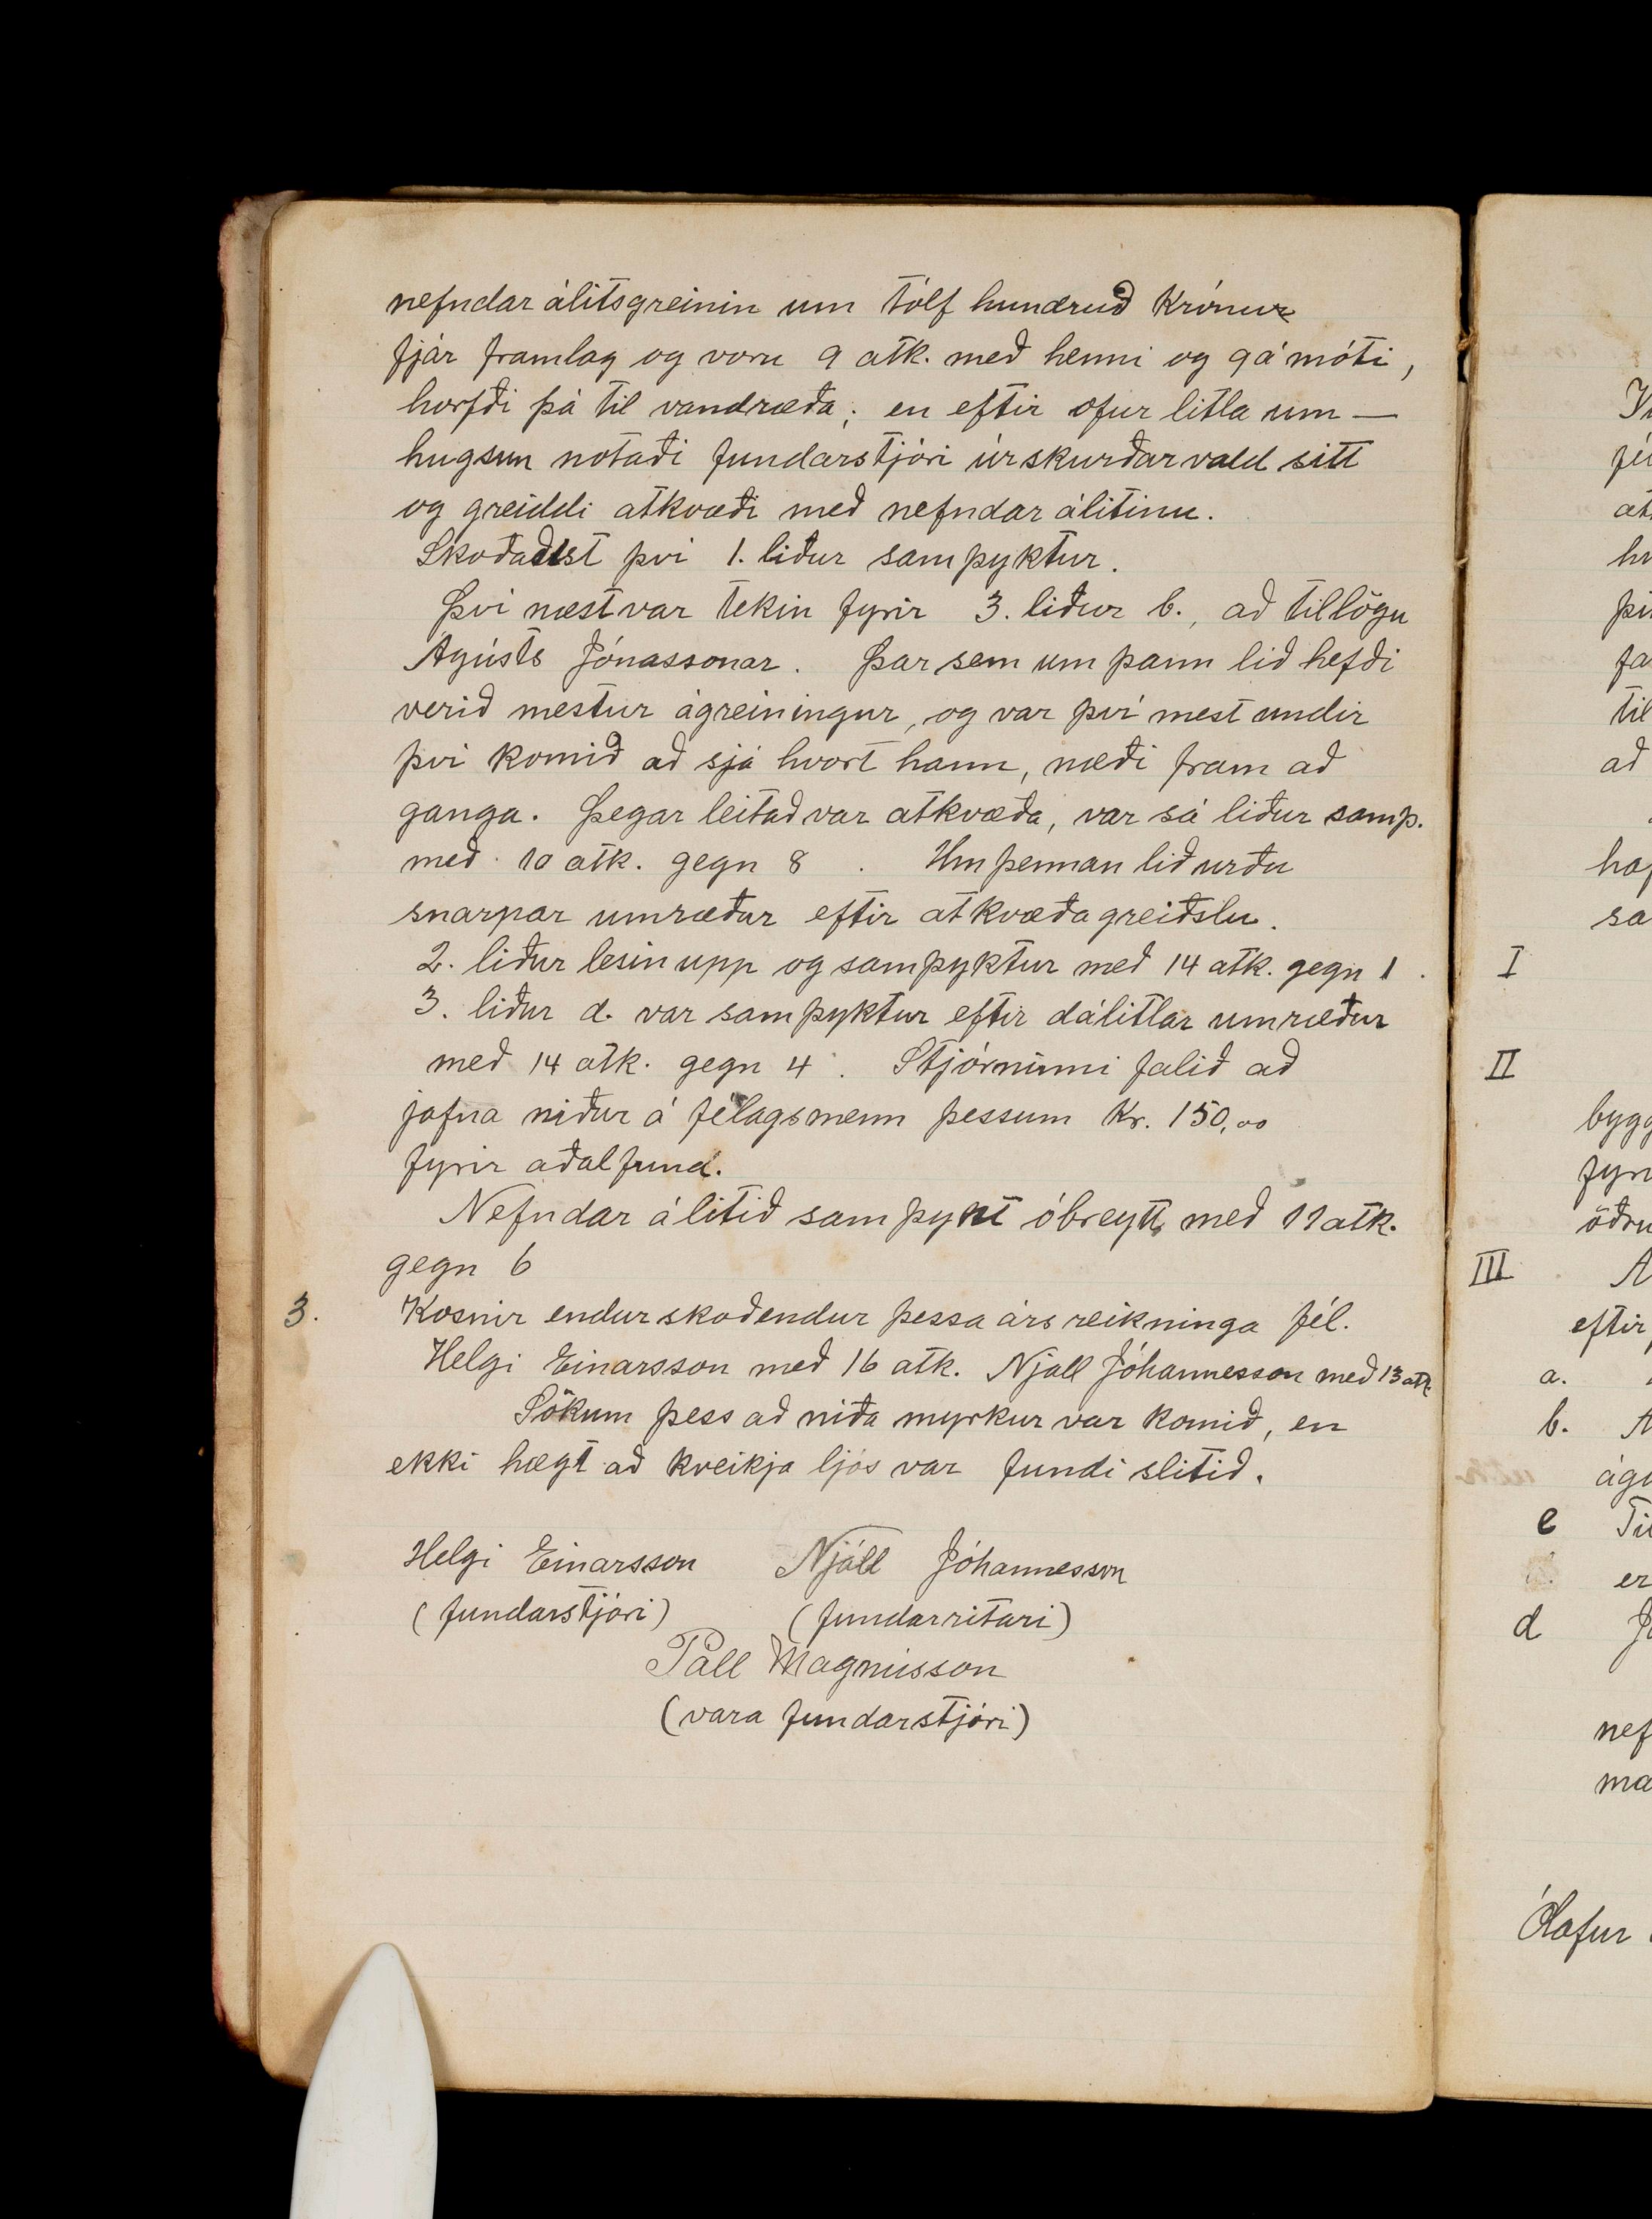 nefndar álitsgreinin um tólf hundruð krónur
fjár framlag og voru 9 atk. með henni og 9 á móti,
horfði þá til vandræða; en eftir ofur litla um—
hugsun notaði fundarstjóri úrskurðarvald sitt
og greiddi atkvæði með nefndar álitinu.
Skoðaðist því 1. liður samþyktur.
Því næst var tekin fyrir 3. liður b., að tillögu
Ágústs Jónassonar. Þar sem um þann lið hefði
verið mestur ágreiningur, og var því mest undir
því komið að sjá hvort hann, næði fram að
ganga. Þegar leitað var atkvæða, var sá liður samþ.
með 10 atk. gegn 8. Um þennan lið urðu
snarpar umræður eftir atkvæðagreiðslu.
2. liður lesin upp og samþyktur með 14 atk. gegn 1.
3. liður d. var samþyktur eftir dálitlar umræður
með 14 atk. gegn 4. Stjórninni falið að
jafna niður á félagsmenn þessum Kr. 150,00
fyrir aðalfund.
Nefndar álitið samþykt óbreytt, með 11 atk.
gegn 6
3. Kosnir endurskoðendur þessa árs reikninga fél.
Helgi Einarsson með 16 atk. Njall Jóhannesson með 13 atk.
Sökum þess að niða myrkur var komið, en
ekki hægt að kveikja ljós var fundi slitið.
Helgi Einarsson Njáll Jóhannesson
(fundarstjóri) (fundarritari)
Páll Magnússon
(vara fundarstjóri)
I
II
bygg
fyri
öðru
III A
eftir
a.
b. A
águ
e Ti
er
d
nef
ma
Ólafur